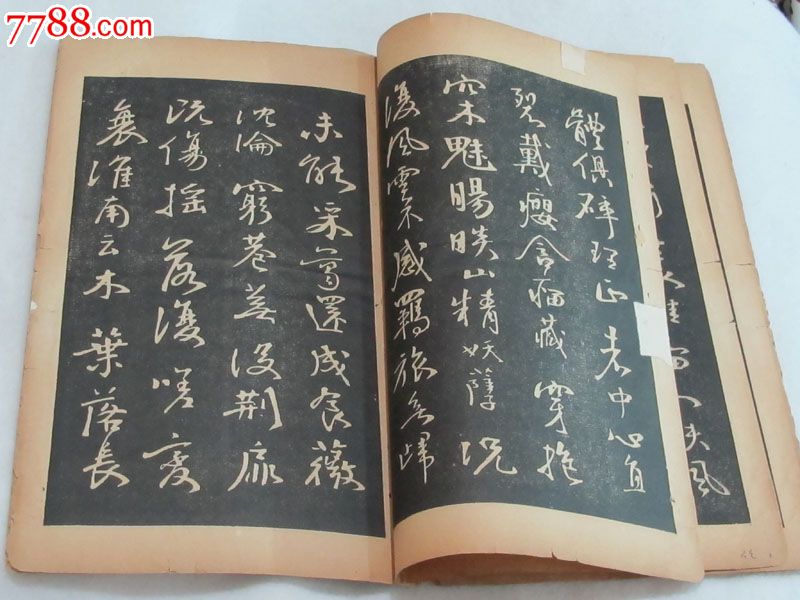 7788.com
體俱碎理正者中心直
裂戴癭含瘤藏穿抱
穴木魅暘睒山精妖孽况
復風雲不感羈旅無歸
未能采葛還成食薇
沈淪窮巷蕪没荆扉
既傷摇落復嗟變
衰淮南云木葉落長